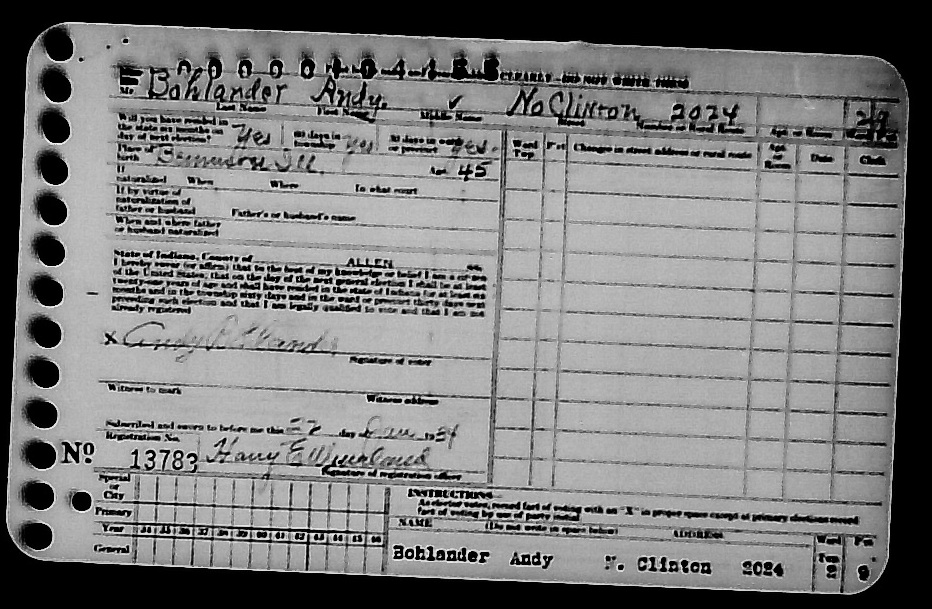 CLEARLY—DO NOT WRITE THESE
Mr Bohlander Andy. ✓ No Clinton 2024
Last Name First Name Middle Name Street Number or Rural Route Apt. or Room
Will you have resided in the state six months on day of best election? Yes 60 days in township yes 30 days in ward or precinct yes.
Place of birth Ill. Age 45
If naturalized When Where In what court
If by virtue of naturalization of father or husband Father's or husband's name
When and where father or husband naturalized
Ward Twp Pct Changes in street address or rural route Apt. or Room Date Clerk
State of Indiana, County of ALLEN ss.
I hereby swear (or affirm) that to the best of my knowledge or belief I am a citizen
of the United States, that on the day of the next general election I shall be at least
twenty-one years of age and shall have resided in the state of Indiana at least six
months and in the township sixty days and in the ward or precinct thirty days next
preceding such election and that I am legally qualified to vote and that I am not
already registered
X Andy Bohlander
Signature of voter
Witness to mark Witness address
Subscribed and sworn to before me this 22 day of Jan 1934
Registration No.
No 13783 Harry E.
Signature of registration officer
Special or City
Primary
Year 34 35 36 37 38 39 40 41 42 43 44 45 46
General
INSTRUCTIONS
As elector votes, record fact of voting with an "X" in proper space except at primary elections record
fact of voting by use of party initial
NAME (Do not write in space below) ADDRESS Ward Pct
Twp
Bohlander Andy N. Clinton 2024 2 9